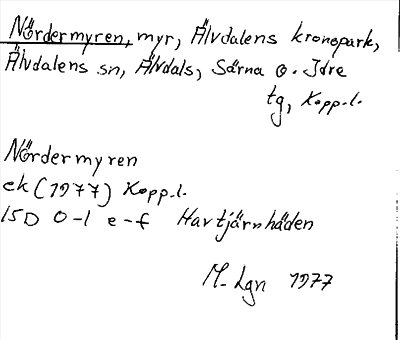 Nördermyren, myr, Älvdalens kronopark,
Älvdalens sn, Älvdals, Särna o. Idre
tg, Kopp.l.
Nördermyren
ek (1977) Kopp.l.
15D 0-1 e-f Havtjärnhäden
M. Lgn 1977